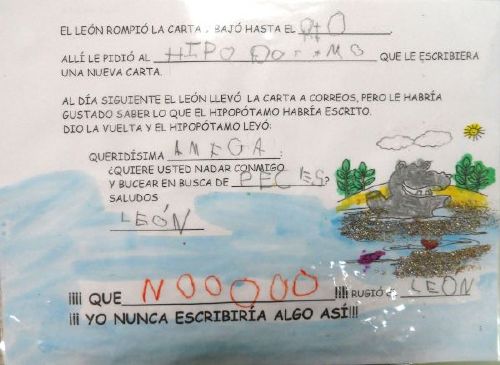 EL LEÓN ROMPIÓ LA CARTA Y BAJÓ HASTA EL
ALLÍ LE PIDIÓ AL HIPOPOTAMO QUE LE ESCRIBIERA
UNA NUEVA CARTA.
AL DÍA SIGUIENTE EL LEÓN LLEVÓ LA CARTA A CORREOS, PERO LE HABRÍA
GUSTADO SABER LO QUE EL HIPOPÓTAMO HABRÍA ESCRITO.
DIO LA VUELTA Y EL HIPOPÓTAMO LEYÓ:
QUERIDÍSIMA AMEGA:
¿QUIERE USTED NADAR CONMIGO
Y BUCEAR EN BUSCA DE PECES?
SALUDOS
LEÓN
¡¡¡¡ QUE NOOOOO !!!! RUGIÓ EL LEÓN
¡¡¡ YO NUNCA ESCRIBIRÍA ALGO ASÍ!!!